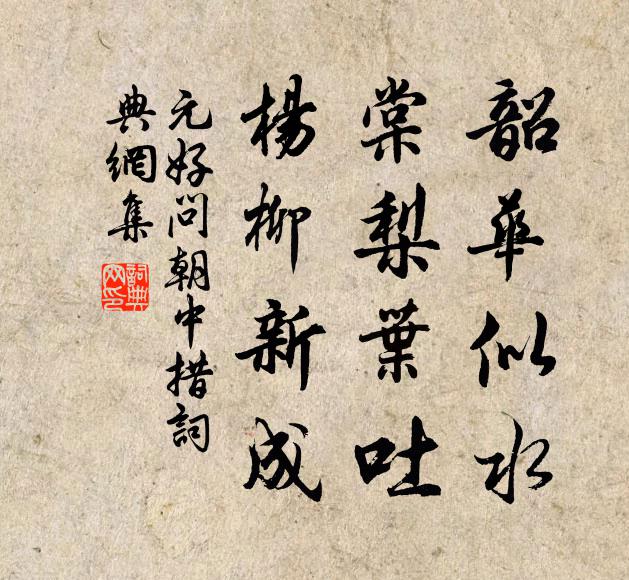 韶華似水
棠梨葉吐
楊柳新成
元好問朝中措詞
典網集
詞典網印